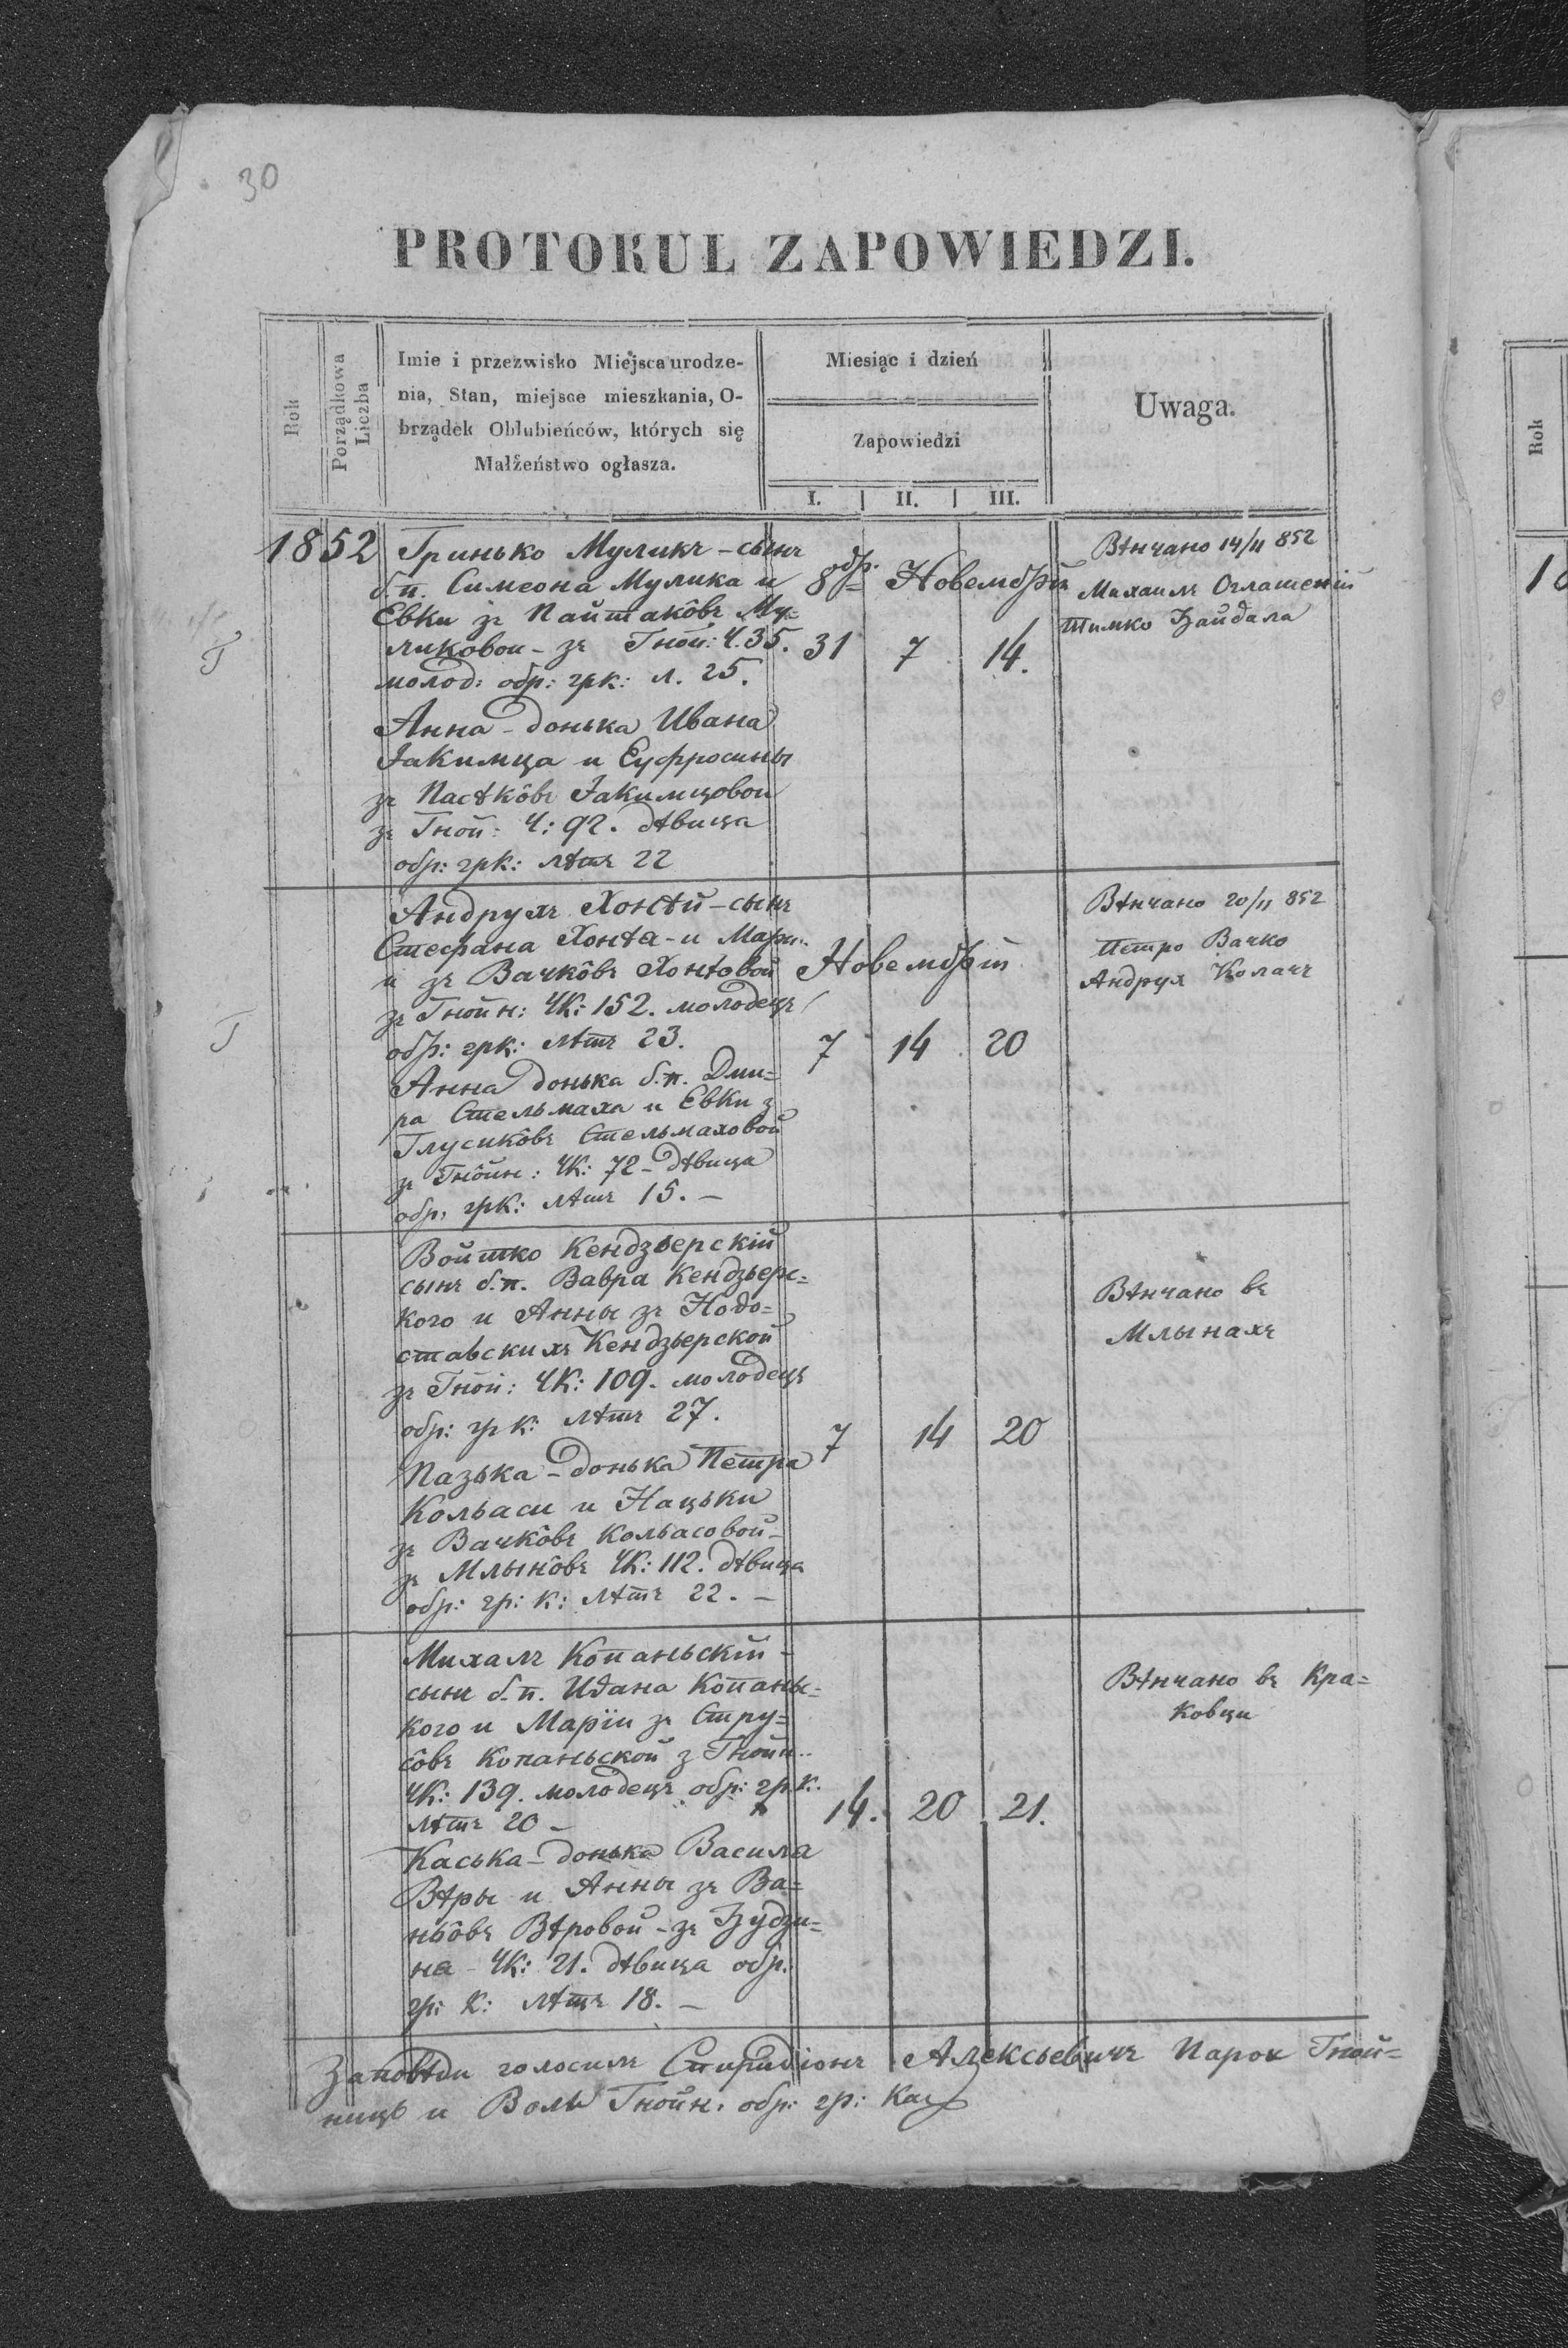 30
PROTOKUŁ ZAPOWIEDZI.
Rok
Porządkowa
Liczba
Imie i przezwisko Miejsca urodze-
nia, Stan, miejsce mieszkania, O-
brządek Oblubieńców, których się
Małżeństwo ogłasza.
Miesiąc i dzień
Zapowiedzi
I. II. III.
Uwaga.
1852
Гринько Муликъ - сынъ
б.п. Симеона Мулика и
Евки зъ Пайтакôвъ Му=
ликовои - зъ Гной: Ч. 35.
молод: обр: грк: л. 25.
Анна - донька Ивана
Іакимца и Еуфросины
зъ Пасѣкôвъ Іакимцовои
зъ Гной: Ч: 92. дѣвица
обр: грк: лѣтъ 22
8бр. Новембрій
31 7 14.
Вѣнчано 14/11 852
Михаилъ
Тимко Гайдала
Г
Андрухъ Хонѣй - сынъ
Стефана Хонѣа - и Мари-
и зъ Вачкôвъ Хонѣовой
зъ Гнойн: ЧК: 152. молодецъ
обр: грк: лѣтъ 23.
Анна донька б.п. Дми=
ра Стельмаха и Евки з
Глусикôвъ Стельмаховой
зъ Гнойн: ЧК: 72 - дѣвица
обр: грк: лѣтъ 15. -
Новембрій
7 14 20
Вѣнчано 20/11 852
Петро Вачко
Андрух Колачъ
Г
Войтко Кендзѣерскій
сынъ б.п. Вавра Кендзьерс=
кого и Анны зъ Нодо=
ставскихъ Кендзьерской
зъ Гной: ЧК: 109. молодецъ
обр: гр к: лѣтъ 27.
Пазька - донька Петра
Кольаси и Нацьки
зъ Вачкôвъ Кольасовой -
зъ Млынôвъ ЧК: 112. дѣвица
обр: гр: к: лѣтъ 22. -
7 14 20
Вѣнчано въ
Млынахъ
Михалъ Копаньскій -
сынъ б.п. Ивана Копаньс=
кого и Маріи зъ Стру=
сôвъ Копаньской з Гнойн..
ЧК: 139. молодецъ обр: гр.к.
лѣтъ 20 -
Каська - донька Васила
Вѣры и Анны зъ Ва=
ньôвъ Вѣровой - зъ Гудзи=
на - ЧК: 21. дѣвица обр:
гр: к: лѣтъ 18. -
14. 20 21.
Вѣнчано въ Кра=
ковци
Заповѣди голосилъ Спиридіонъ Алексьевичъ Парох Гной=
ниць и Воль Гнойн: обр: гр: Каѳ